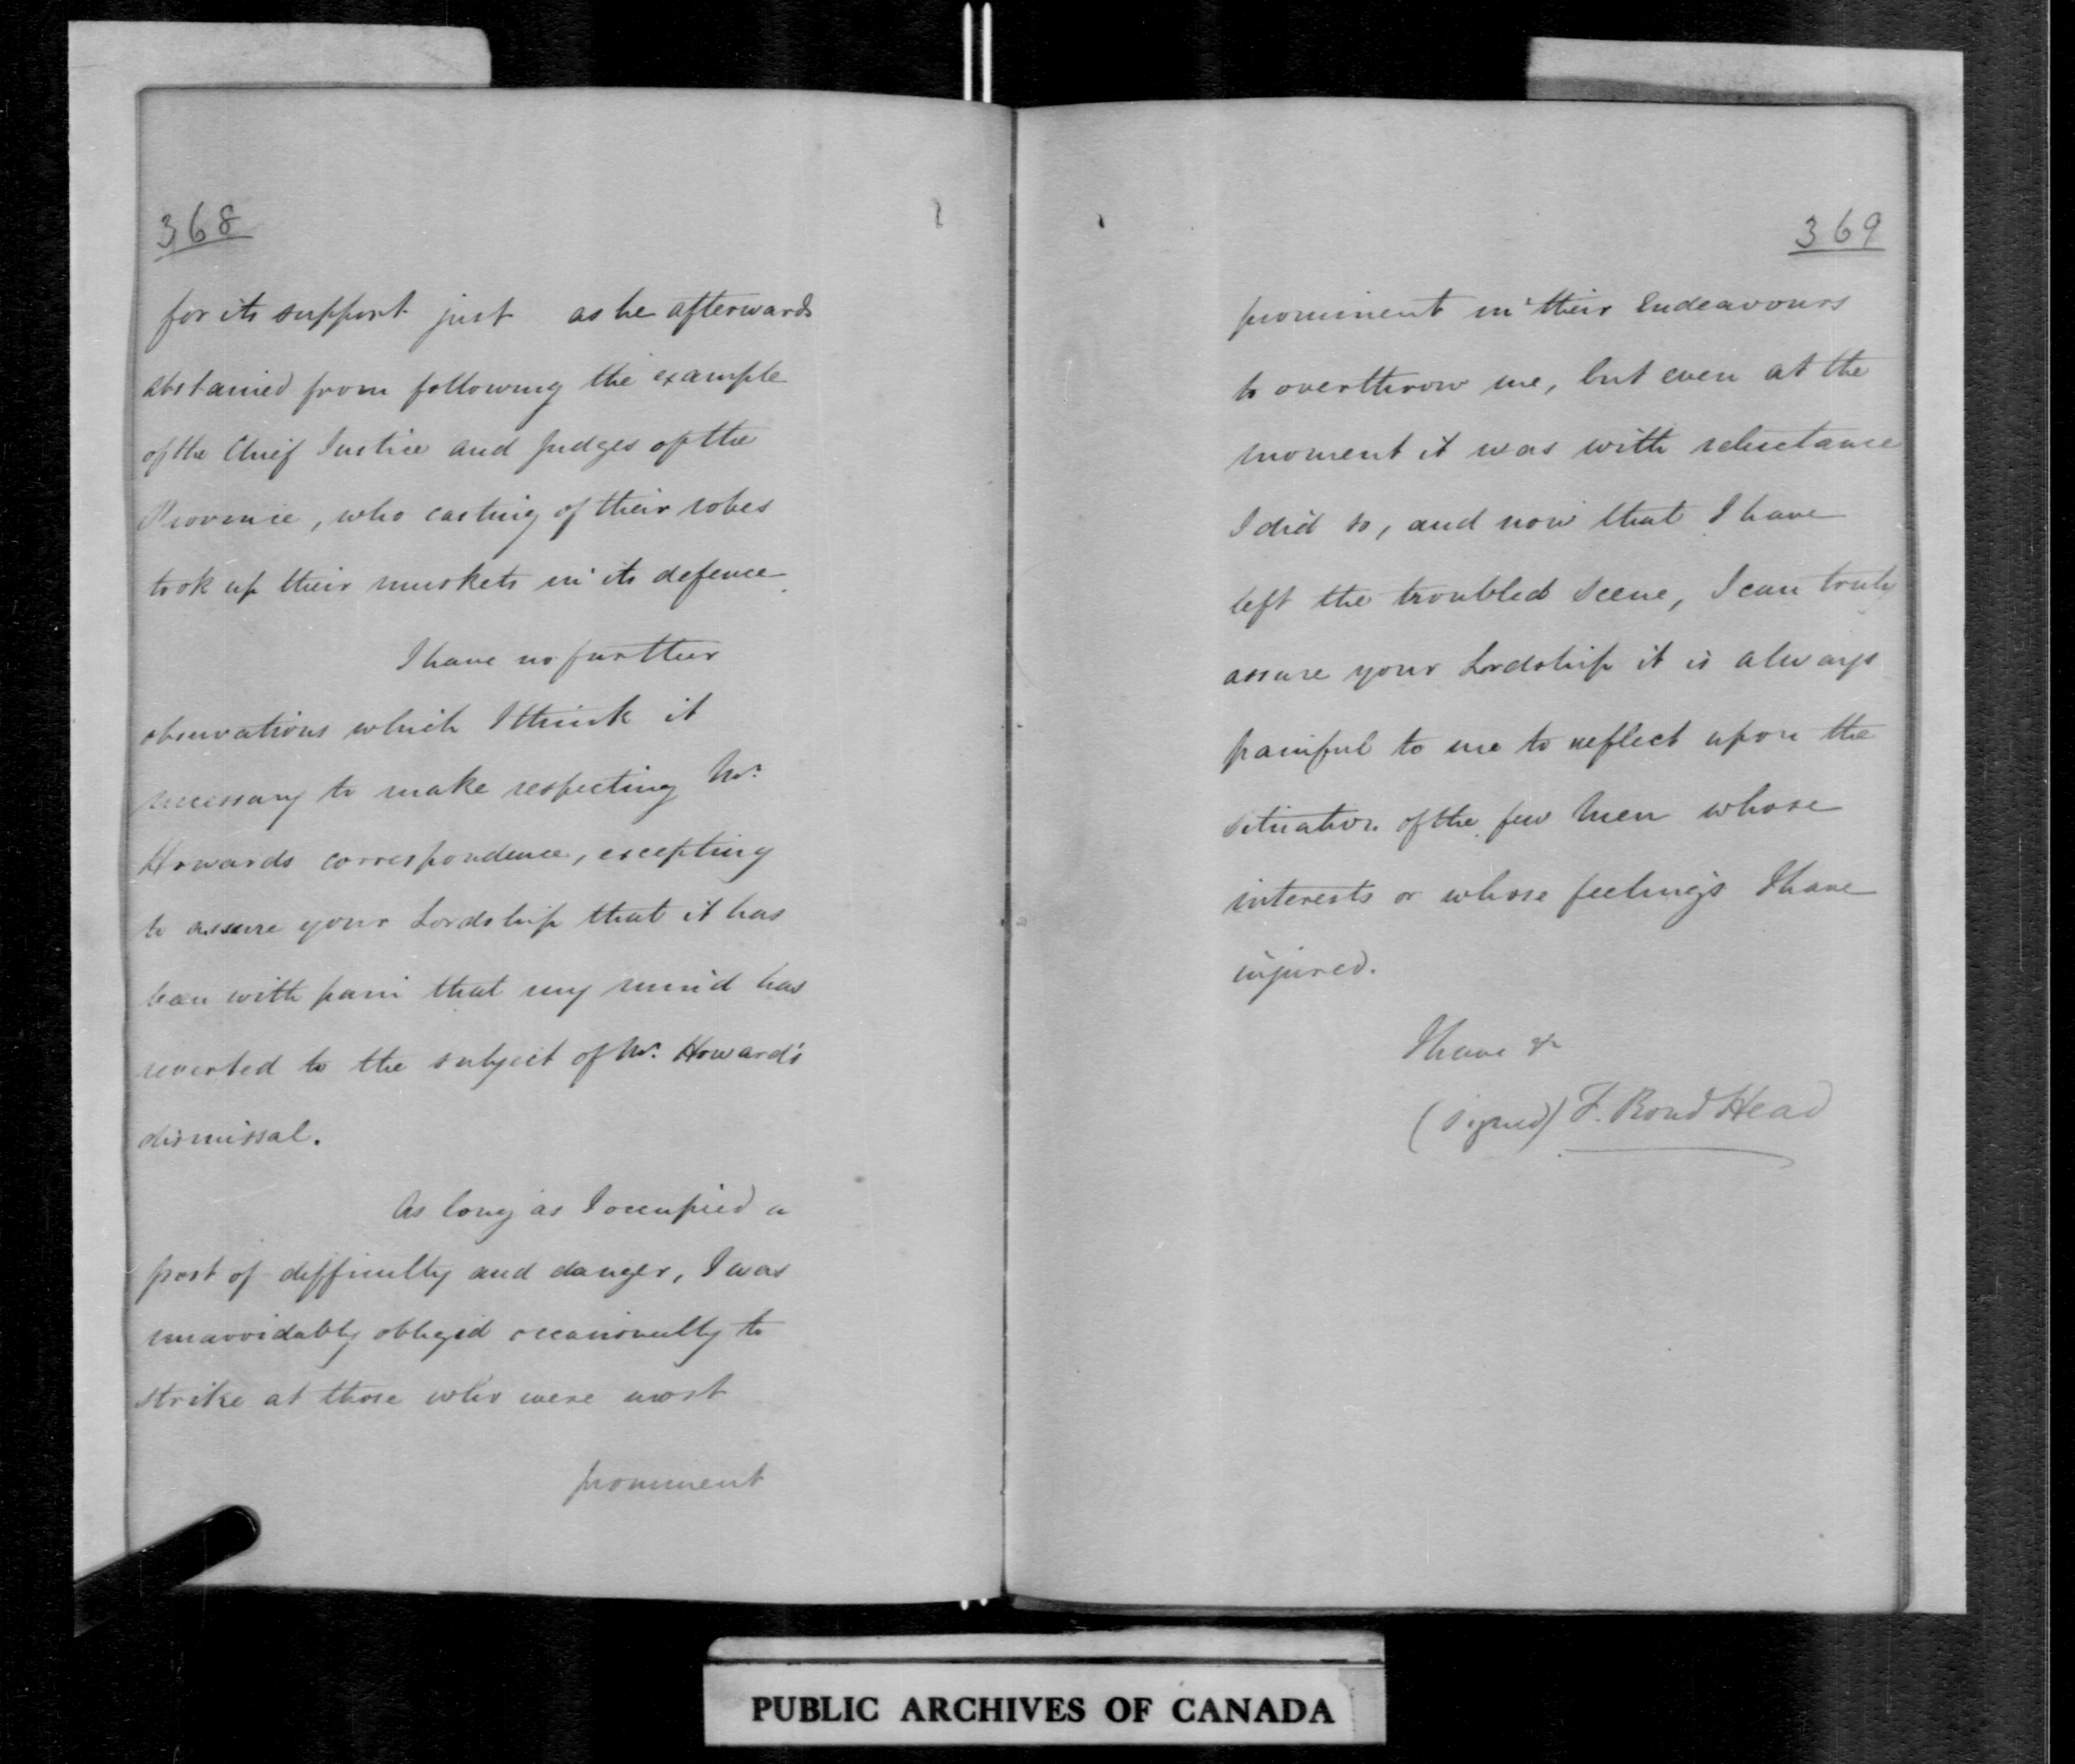 368
for its support just as he afterwards
abstained from following the example
of the Chief Justice and Judges of the
Province, who casting of their robes
took up their muskets in its defence.
I have no further
observations which I think it
necessary to make respecting Mr.
Howards correspondence, excepting
to assure your Lordship that it has
been with pain that my mind has
reverted to the subject of Mr. Howard's
dismissal.
As long as I occupied a
post of difficulty and danger, I was
unavoidably obliged occasionally to
strike at those who were most
prominent
369
prominent in their Endeavours
to overthrow me, but even at the
moment it was with reluctance
I did so, and now that I have
left the troubled scene, I can truly
assure your Lordship it is always
painful to me to reflect upon the
situation of the few men whose
interests or whose feelings I have
injured.
I have &c
(signed) F. Bond Head
PUBLIC ARCHIVES OF CANADA